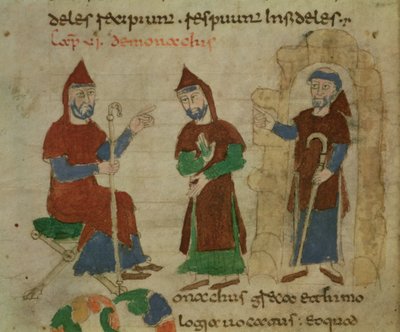 deles recipiunt. respuunt Infideles.
Cap VI. demonachis
onachus greca ethimo
logia uocatus. eo quod